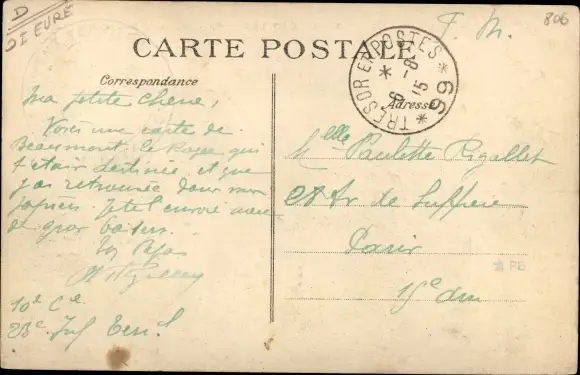 D
Dt EURE
CARTE POSTALE
F. M.
806
TRESOR ET POSTES * 99 *
6 - 8
15
Correspondance
Adresse
Ma petite cherie,
Voici une carte de
Beaumont le Roger qui
t'était destinée et que
j'ai retrouvée dans mes
papiers. Je te l'envoie avec
de gros baisers.
Ton Papa
10e Cie
23e Inf Terr
Melle Paulette Rigallet
28 Av de Suffren
Paris
15e arr